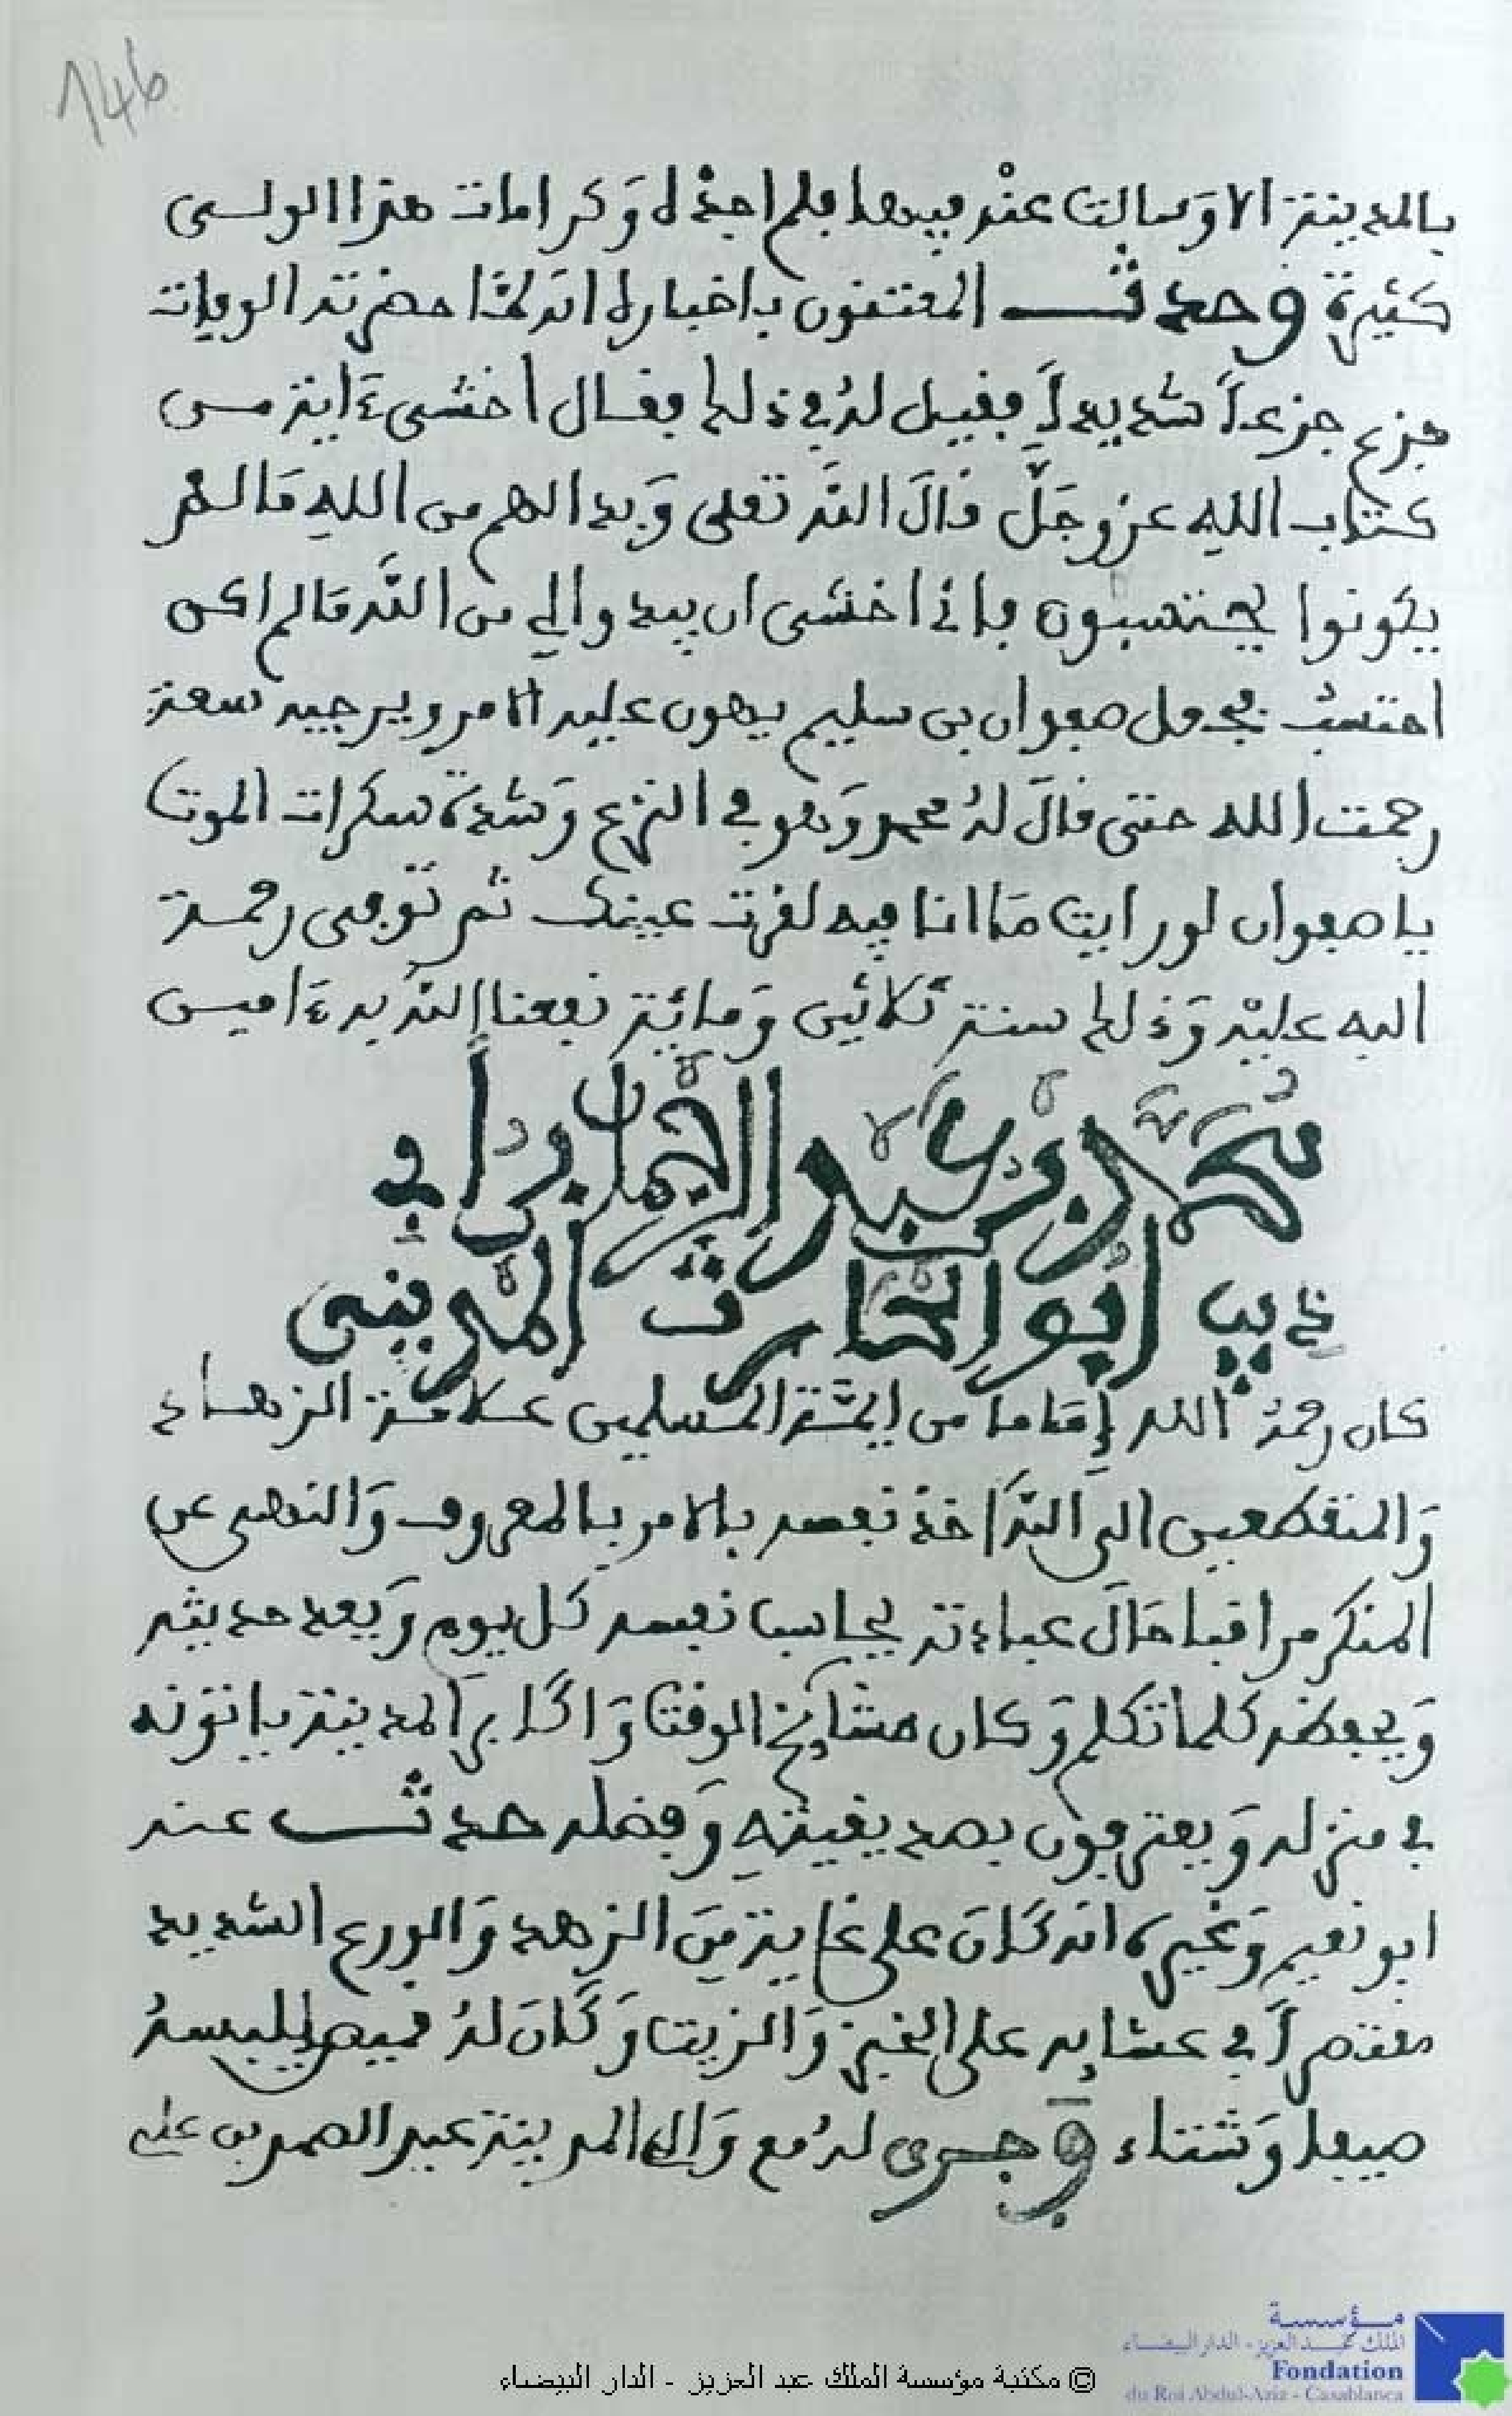 146
بالمدينة الا وسالت عنه فيها فلم اجد له وكرامات هذا الولي
كثيرة وحدث المعتنون باخباره انه لما حضرته الوفات
جزع جزعا شديدا فقيل له في ذلك فقال اخشى ءاية من
كتاب الله عز وجل قال الله تعلى وبدا لهم من الله ما لم
يكونوا يحتسبون فانى اخشى ان يبدوا لي من الله ما لم اكن
احتسب فجعل صفوان بن سليم يهون عليه الامر ويرجيه سعة
رحمت الله حتى قال له محمد وهو في النزع وشدة سكرات الموت
يا صفوان لو رايت ما انا فيه لقرت عينك ثم توفى رحمة
الله عليه وذلك سنة ثلاثين ومائة نفعنا الله به ءامين
محمد بن عبد الرحمان بن ابي
ذيب ابو الحارث المديني
كان رحمه الله إماما من ايمة المسلمين علامة الزهاد
والمنقطعين الى الله اخذ نفسه بالامر بالمعروف والنهي عن
المنكر مراقبا حال عبادته يحاسب نفسه كل يوم ويعد حديثه
ويحفظه كلما تكلم وكان مشايخ الوقت واكابر المدينة ياتونه
في منزله ويعترفون بصد يقيته وفضله حدث عنه
ابو نعيم وغيره انه كان على غاية من الزهد والورع الشديد
مقتصرا في عشايه على الخبز والزيت وكان له قميص يلبسه
صيفا وشتاء وجرى له مع والي المدينة عبد الصمد بن علي
© مكتبة مؤسسة الملك عبد العزيز - الدار البيضاء
مؤسسة
الملك عبد العزيز - الدار البيضاء
Fondation
du Roi Abdul-Aziz - Casablanca